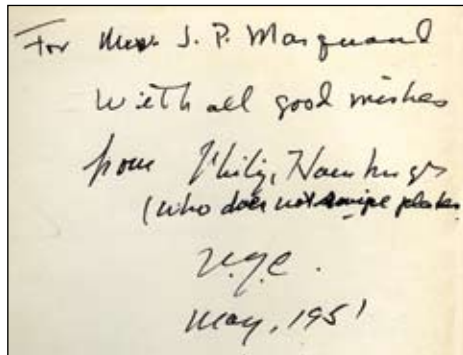 For Mrs. J. P. Marquand
With all good wishes
from Philip Hamburger
(who does not swipe plates
N.Y.C.
May, 1951